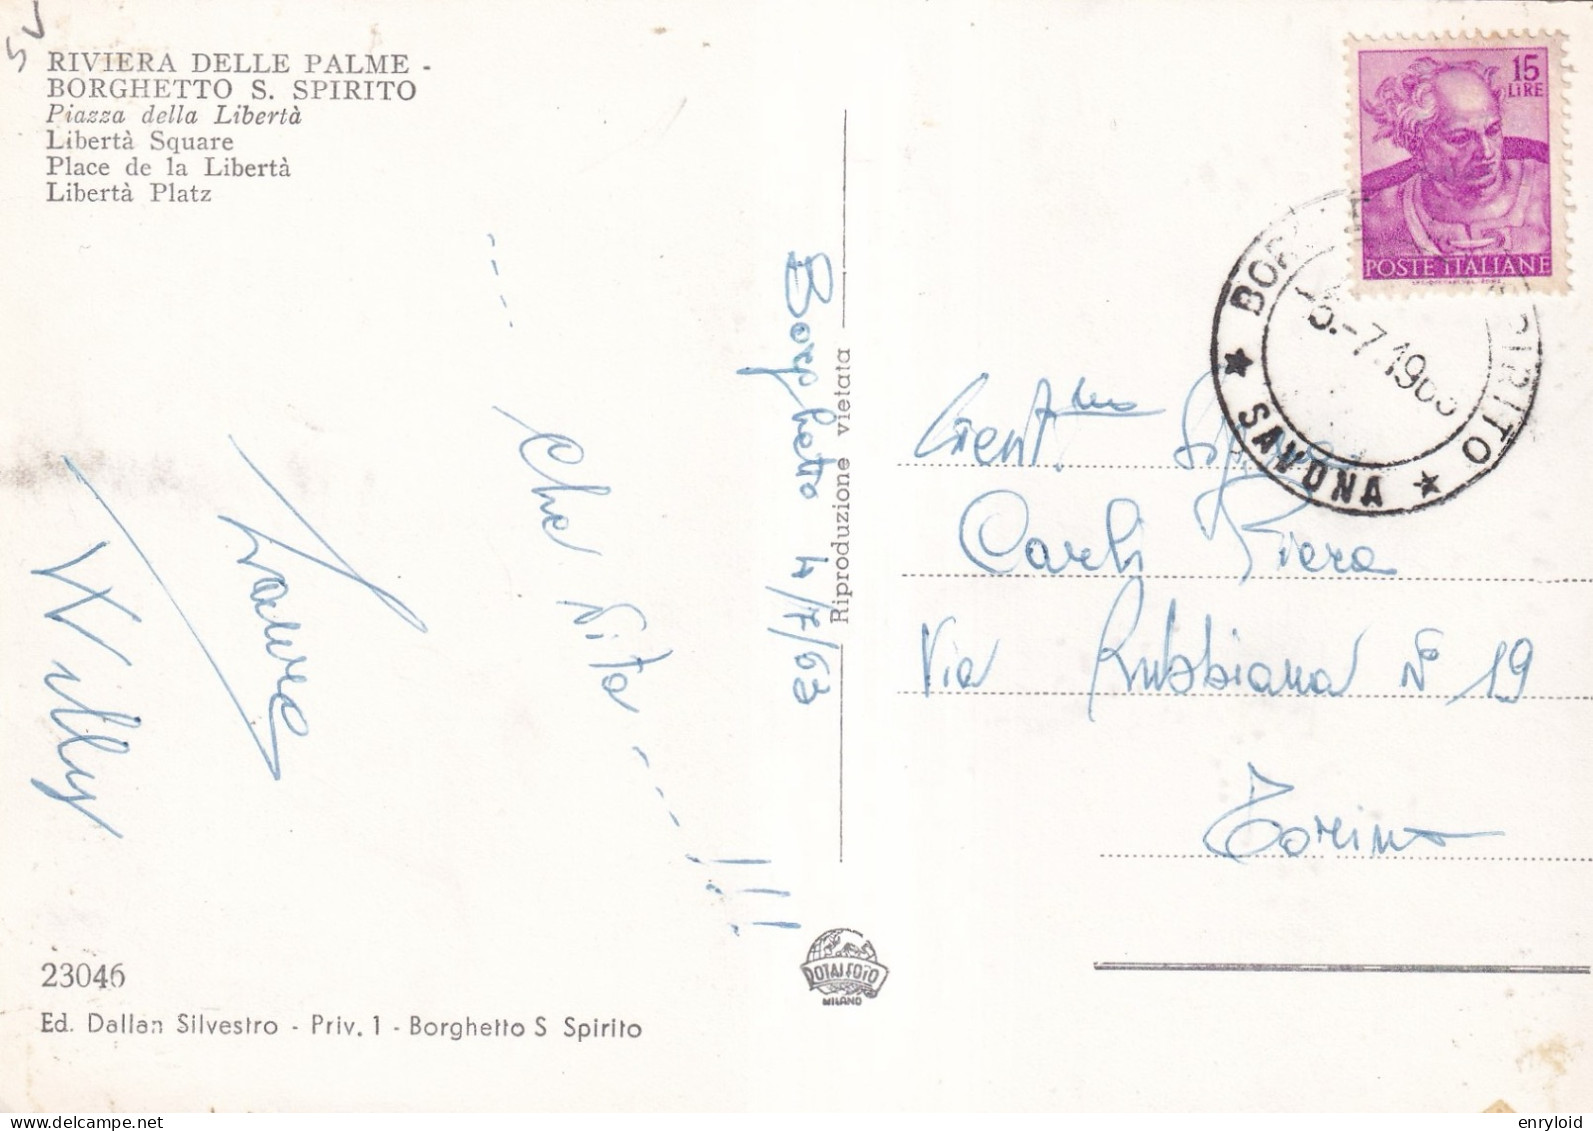 SV
RIVIERA DELLE PALME -
BORGHETTO S. SPIRITO
Piazza della Libertà
Libertà Square
Place de la Libertà
Libertà Platz
Borghetto 4/7/63
---- Che vita ----!!!
Laura
Willy
Riproduzione vietata
15
LIRE
POSTE ITALIANE
SPIRITO
SAVONA
-7.196
Gent.ma Sig.na
Carli Piera
Via Rubbiana N° 19
Torino
ROTALFOTO
MILANO
23046
Ed. Dallan Silvestro - Priv. 1 - Borghetto S Spirito
enryloid